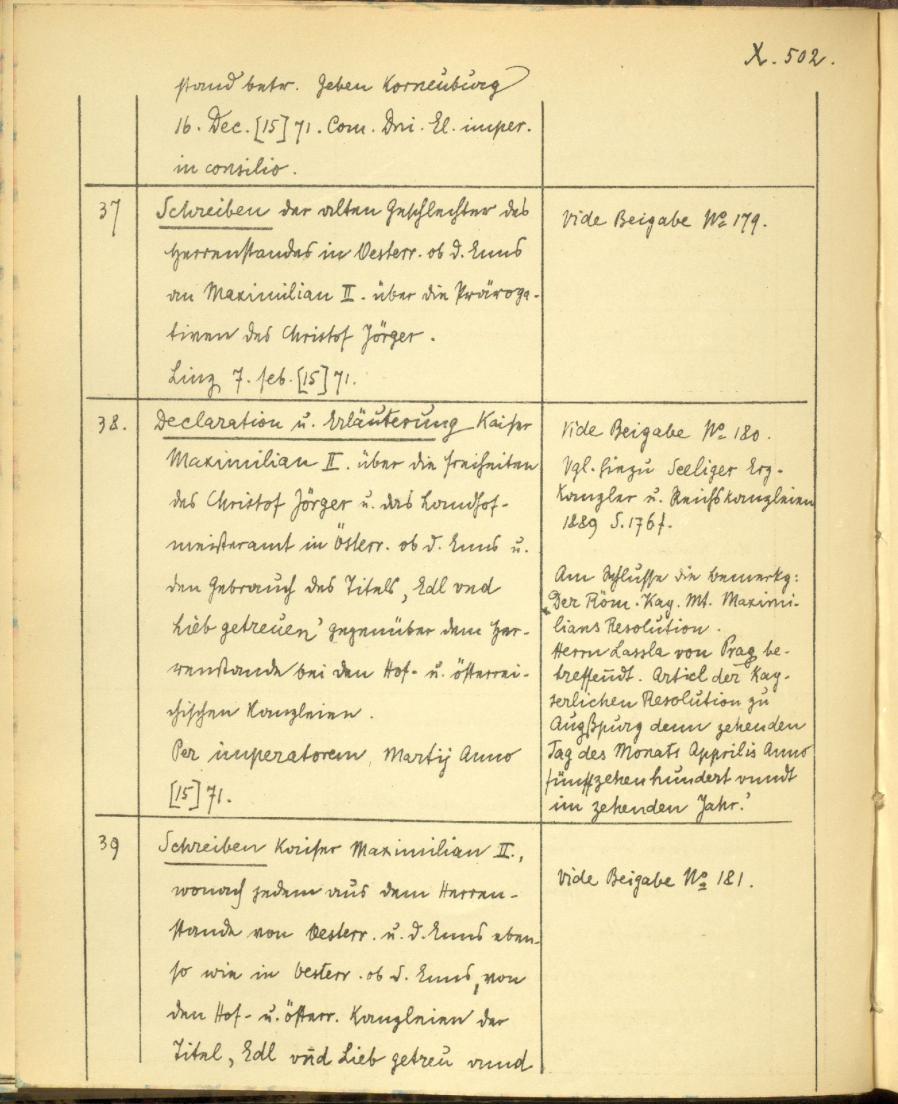 X. 502.
stand betr. Geben Korneuburg
16. Dec. [15]71. Com. Dni. El. imper.
in consilio.
37 Schreiben der alten Geschlechter des
Herrenstandes in Oesterr. ob d. Enns
an Maximilian II. über die Präroga-
tiven des Christof Jörger.
Linz 7. Feb. [15]71.
Vide Beigabe No 179.
38. Declaration u. Erläuterung Kaiser
Maximilian II. über die Freiheiten
des Christof Jörger u. das Landhof-
meisteramt in Österr. ob d. Enns u.
den Gebrauch des Titels „Edl vnd
Lieb getreuen' gegenüber dem Her-
renstande bei den Hof- u. österrei-
chischen Kanzleien.
Per imperatorem, Martij Anno
[15]71.
Vide Beigabe No 180.
Vgl. hiezu Seeliger Erz-
kanzler u. Reichskanzleien
1889 S. 176 f.
Am Schlusse die Bemerkg:
„Der Röm. Kay. Mt. Maximi-
lians Resolution.
Herrn Lassla von Prag be-
treffendt. Articl der Kay-
serlichen Resolution zu
Augßpurg denn zehenden
Tag des Monats Apprilis Anno
fünffzehenhundert vnndt
im zehenden Jahr.'
39 Schreiben Kaiser Maximilian II.,
wonach jedem aus dem Herren-
stande von Oesterr. u. d. Enns eben-
so wie in Oesterr. ob d. Enns, von
den Hof- u. österr. Kanzleien der
Titel „Edl vnd Lieb getreu vnnd
Vide Beigabe No 181.